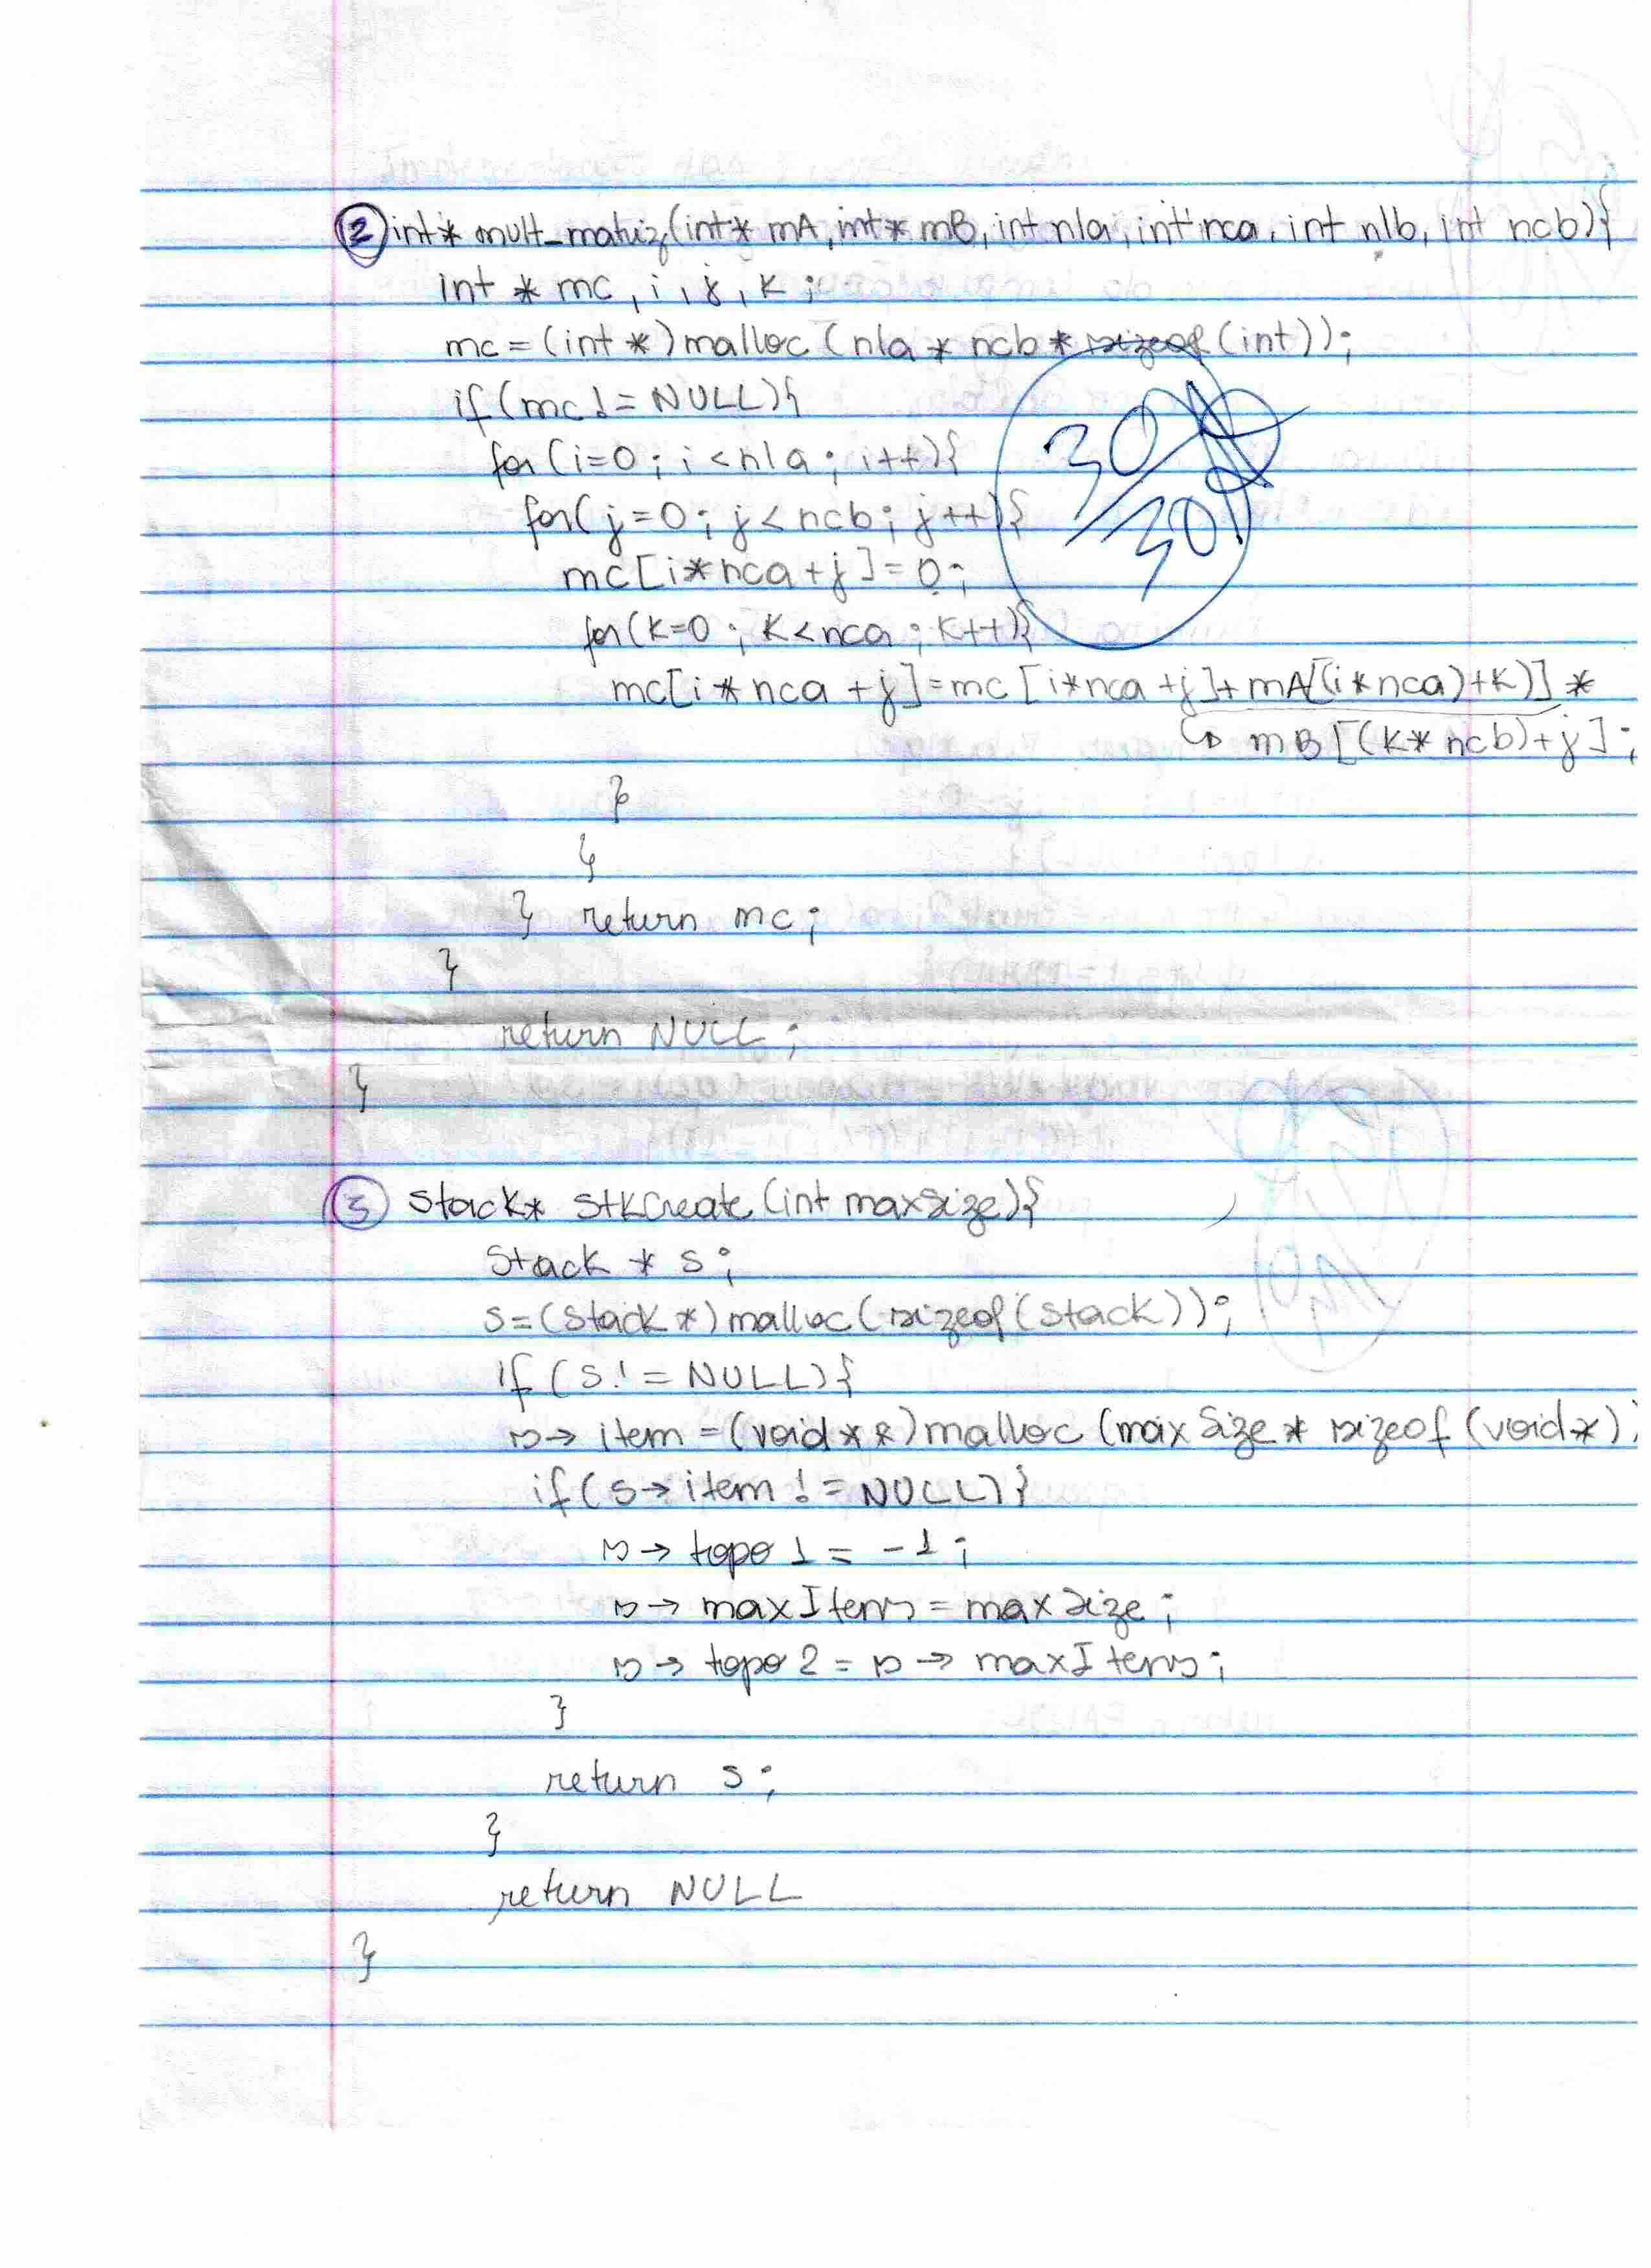 ② int* mult_matriz(int* mA, int* mB, int nla, int nca, int nlb, int ncb){
int * mc, i, j, k;
mc = (int *) malloc (nla * ncb * sizeof (int));
if (mc != NULL){
for (i=0; i<nla; i++){
for (j=0; j<ncb; j++){
mc[i*nca+j]=0;
for (k=0; k<nca; k++){
mc[i*nca+j]=mc[i*nca+j]+mA[(i*nca)+k)] *
↳ mB[(k*ncb)+j];
}
}
} return mc;
}
return NULL;
}
30/30
③ Stack* StkCreate (int maxSize){
Stack * s;
s=(Stack *) malloc (sizeof (Stack));
if (s != NULL){
s→ item = (void**) malloc (maxSize * sizeof (void*)
if (s→ item != NULL){
s→ topo 1 = -1;
s→ maxItens = maxSize;
s→ topo 2 = s→ maxItens;
}
return s;
}
return NULL
}